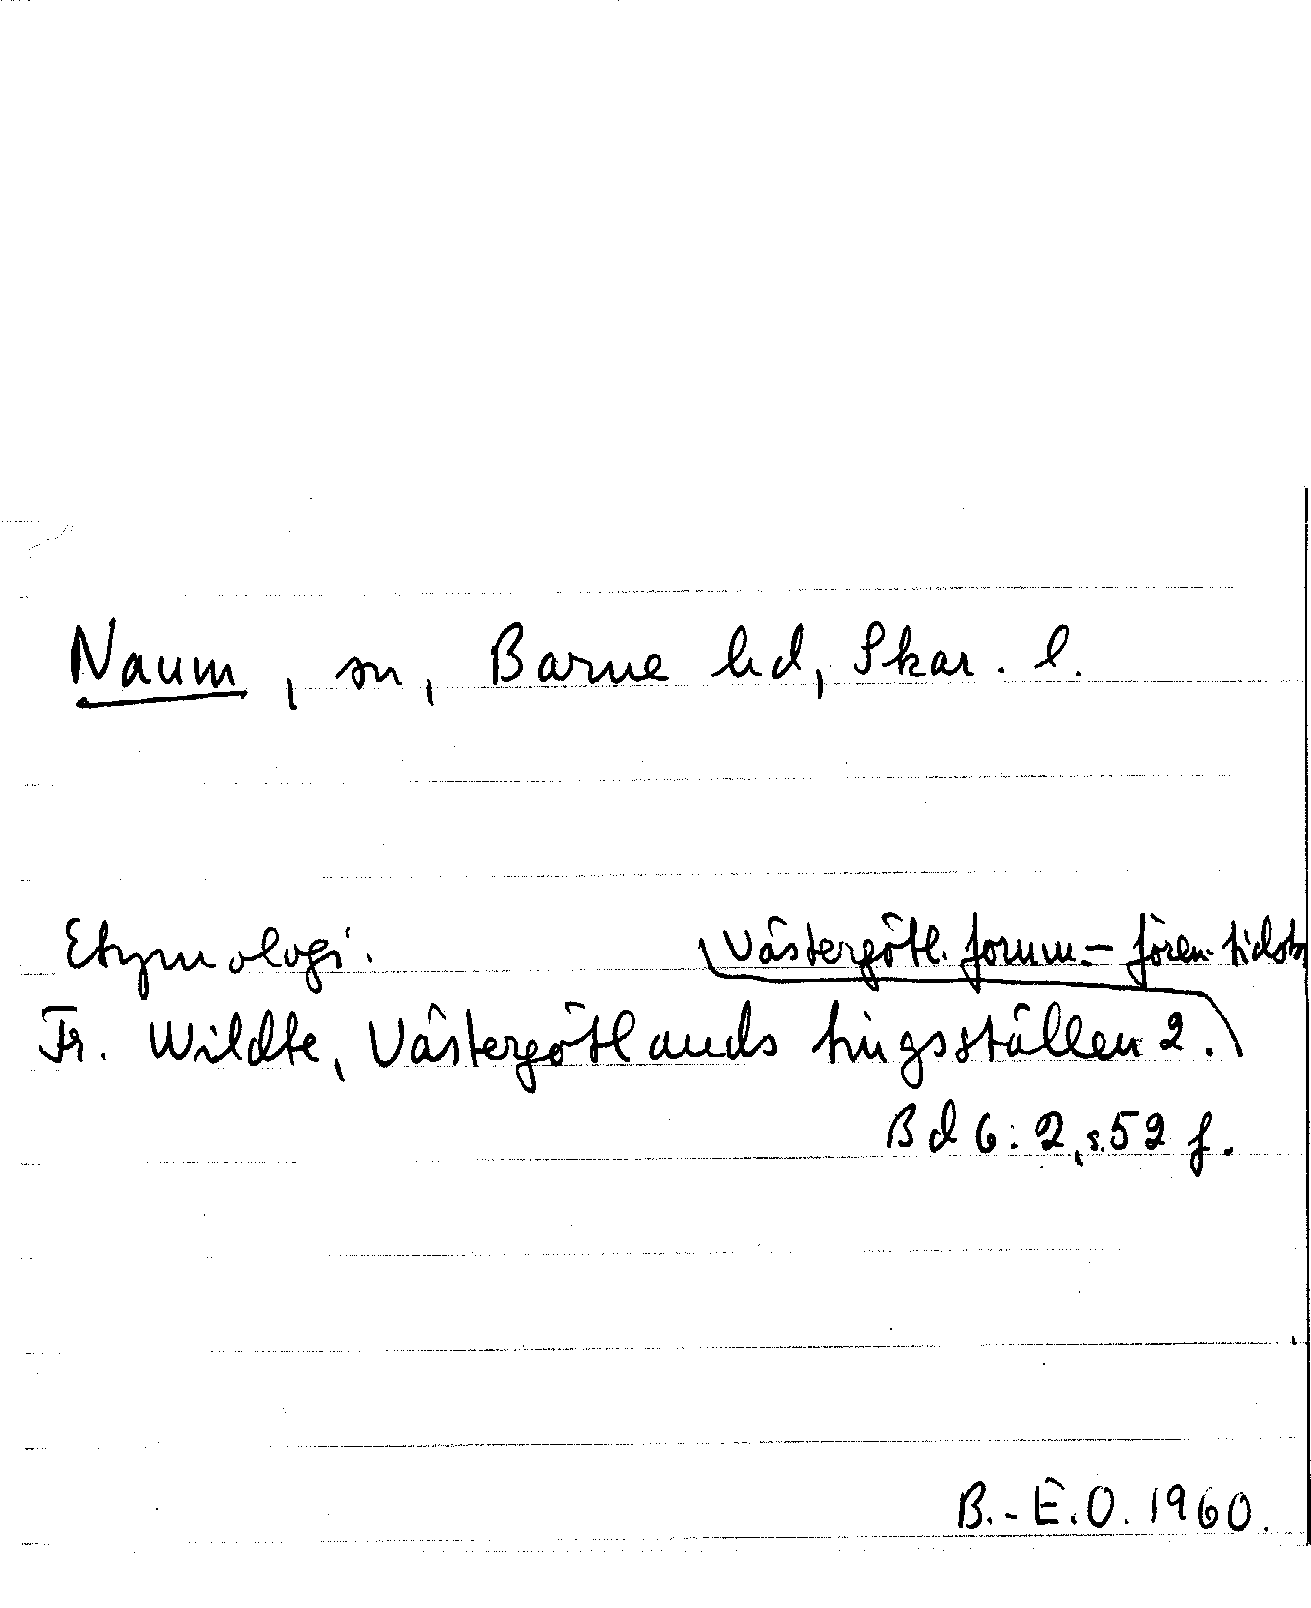 Naum, sn, Barne hd, Skar. l.
Etymologi.
Västergötl. fornm.- fören. tidskr
Fr. Wildte, Västergötlands tingsställen 2.
Bd 6:2, s. 52 f.
B.-E.O. 1960.